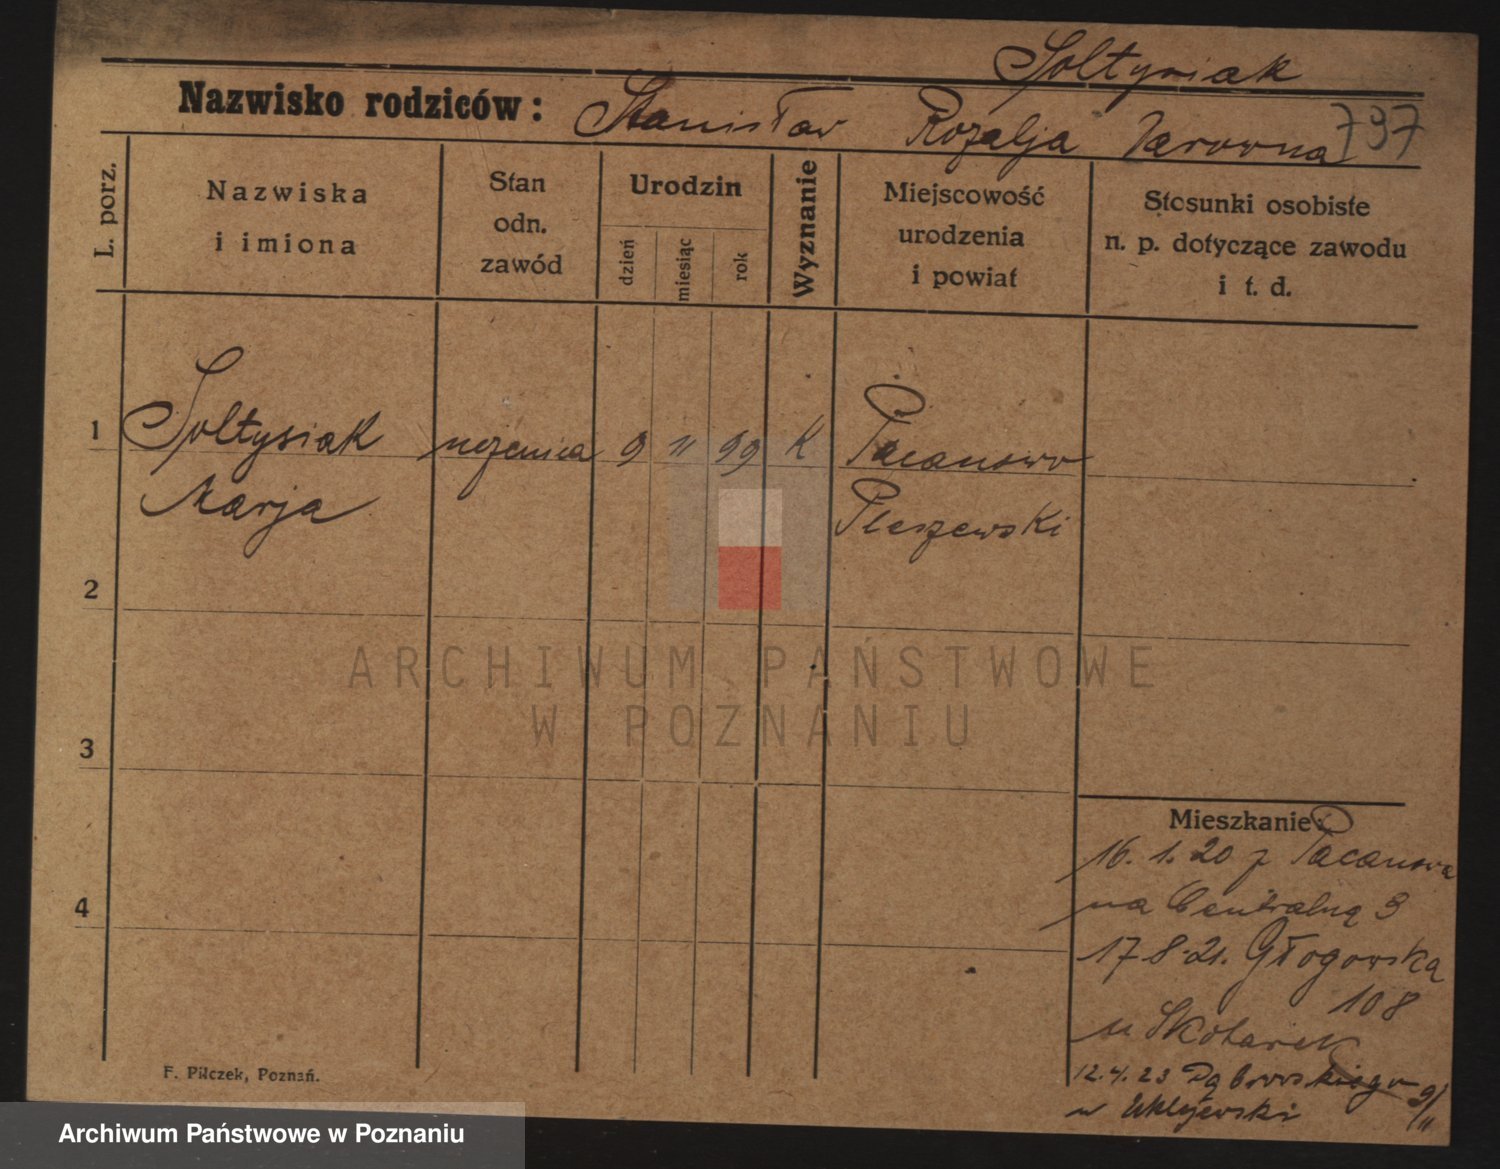 Sołtysiak
Nazwisko rodziców: Stanisław Rozalja 797
L. porz.
Nazwiska
i imiona
Stan
odn.
zawód
Urodzin
dzień
miesiąc
rok
Wyznanie
Miejscowość
urodzenia
i powiat
Stosunki osobiste
n. p. dotyczące zawodu
i t. d.
1 Sołtysiak uczenica 9 11 99 K Pacanowo
Marja Pleszewski
2
3
4
ARCHIWUM PAŃSTWOWE
W POZNANIU
Mieszkanie:
16. 1. 20 z Pacanowa
na Centralną 3
17 8 21. Głogowska
108
u Skotarek
12.4.23 Dąbrowskiego 9/11
F. Pilczek, Poznań.
Archiwum Państwowe w Poznaniu